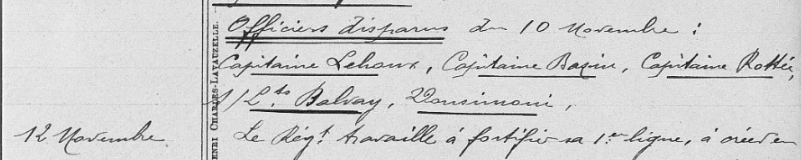 Officiers disparus du 10 Novembre :
Capitaine Lehoux, Capitaine Bazin, Capitaine Rottée,
s/Lts Balvay,
12 Novembre. Le Régt travaille à fortifier sa 1ère ligne, à créer en
HENRI CHARLES-LAVAUZELLE.